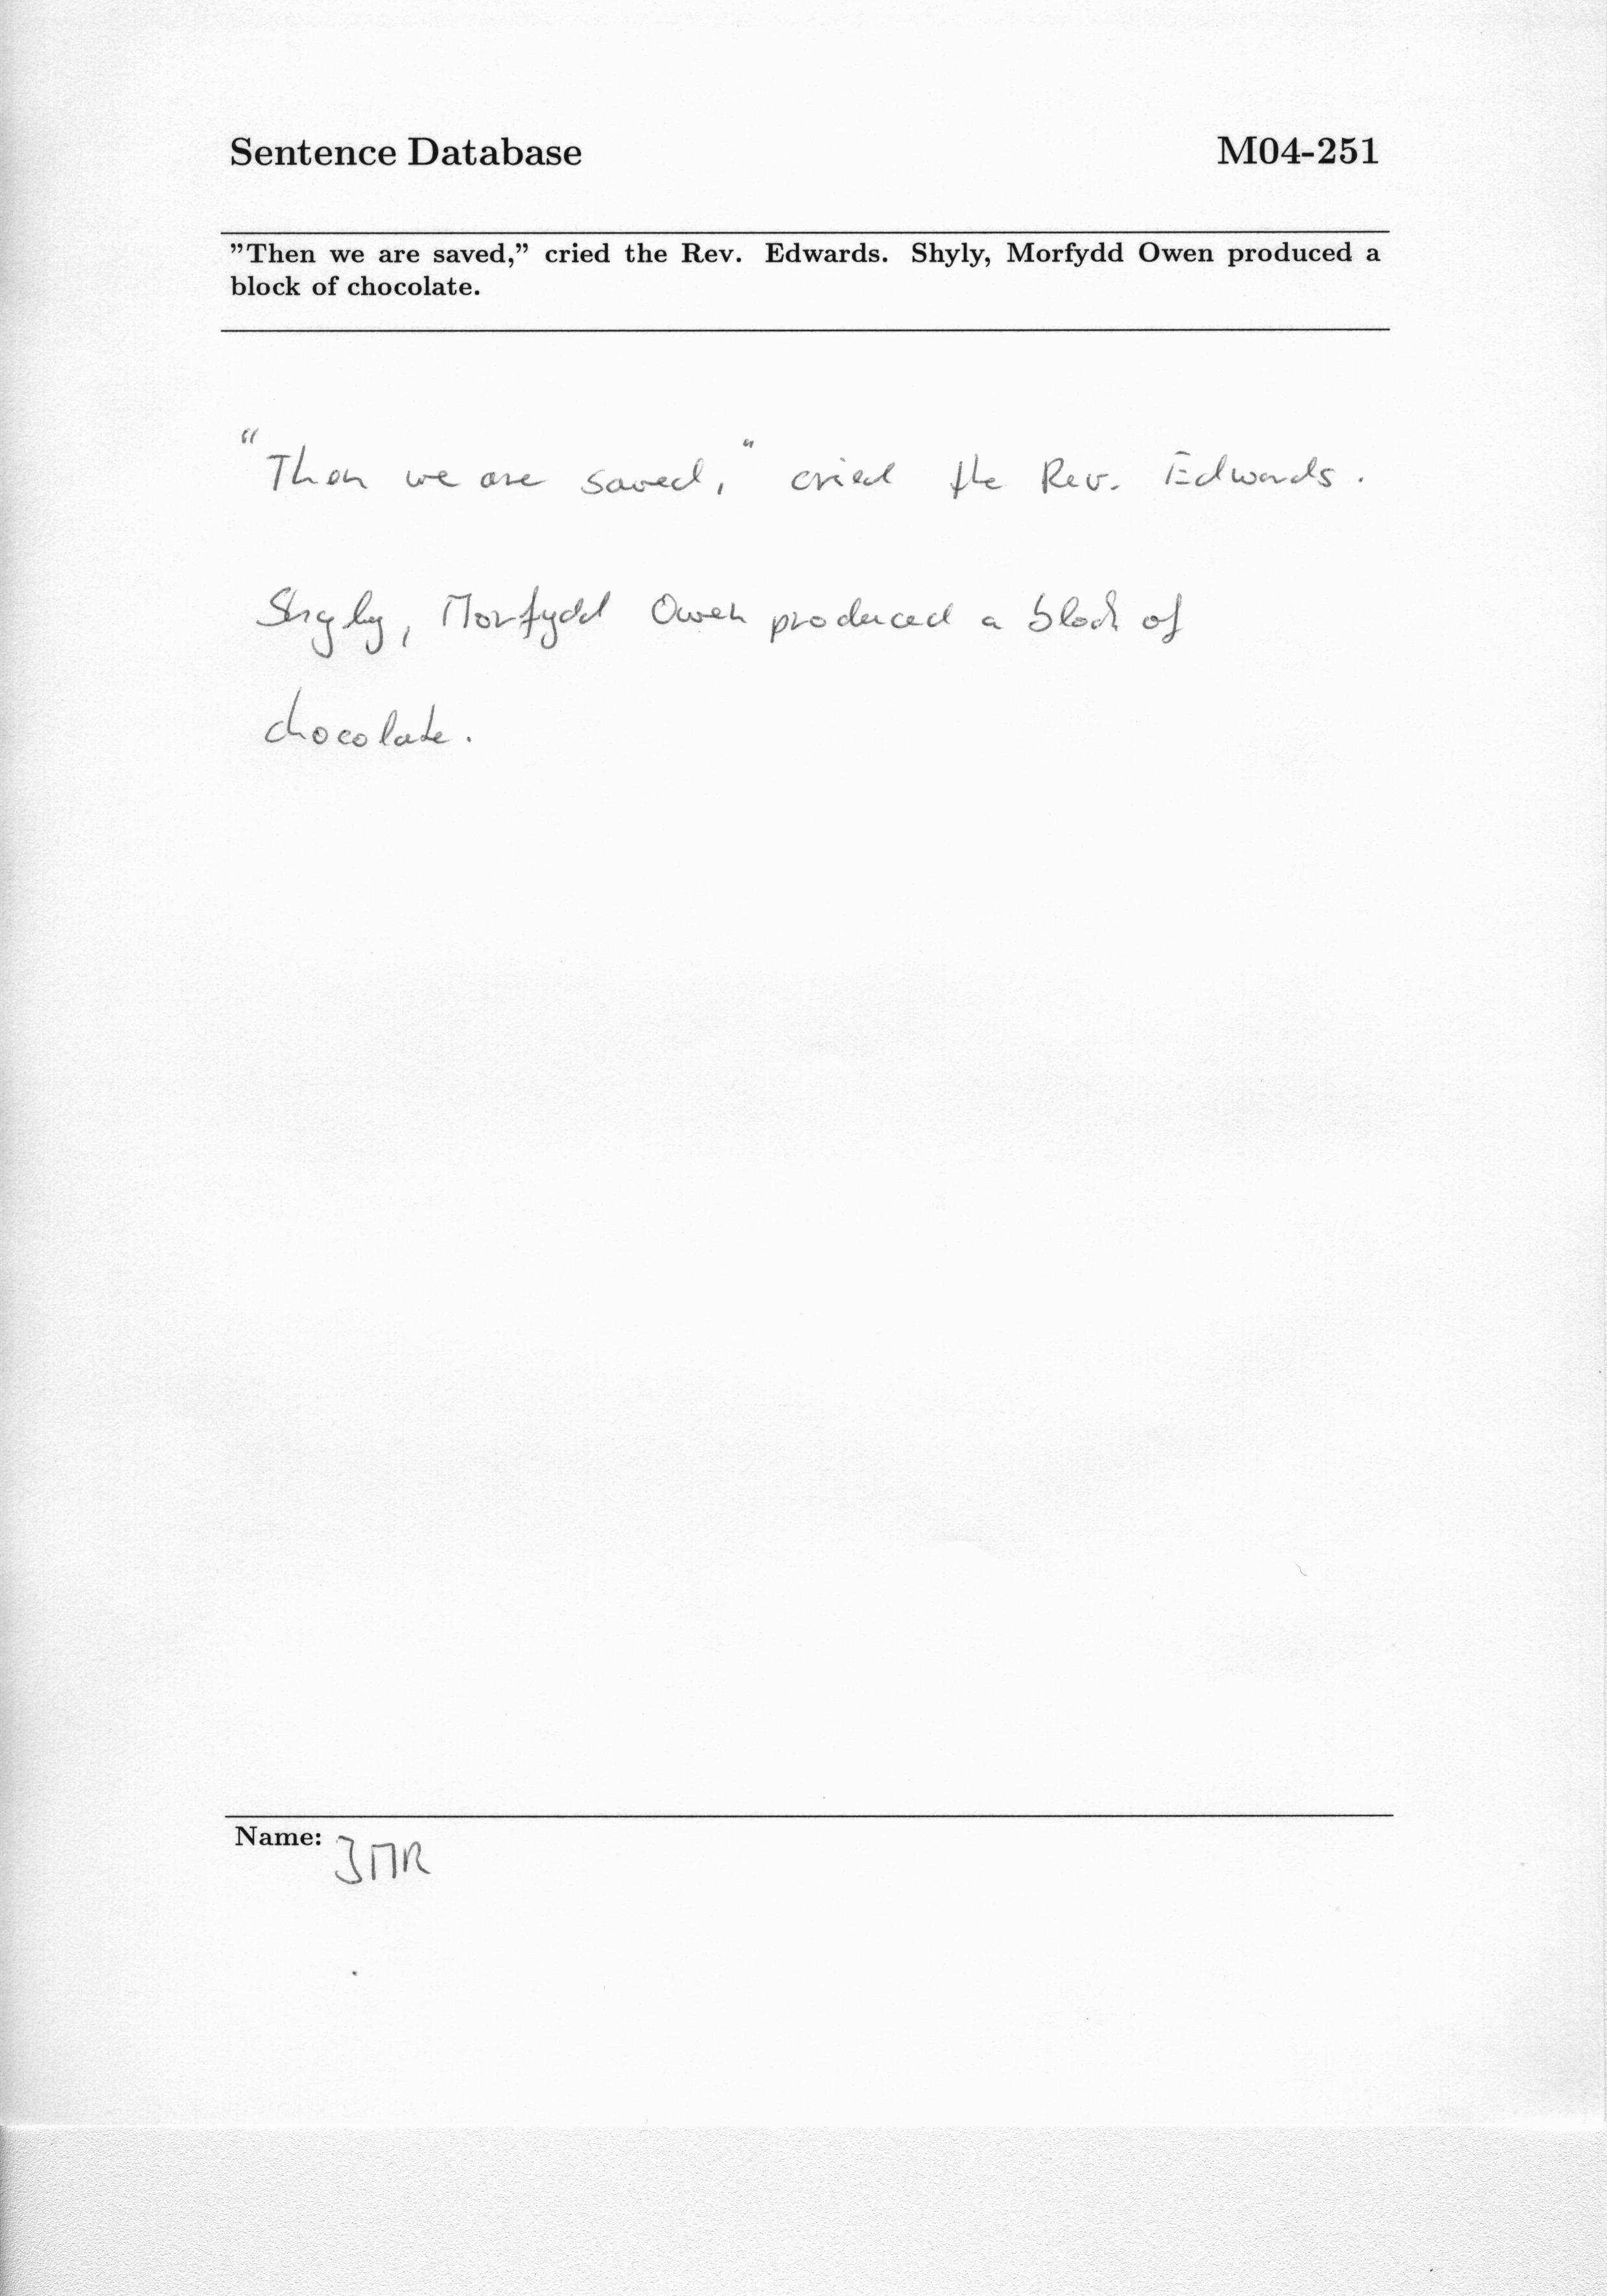 Sentence Database M04-251
”Then we are saved,” cried the Rev. Edwards. Shyly, Morfydd Owen produced a
block of chocolate.
“Then we are saved,” cried the Rev. Edwards.
Shyly, Morfydd Owen produced a block of
chocolate.
Name: JMR